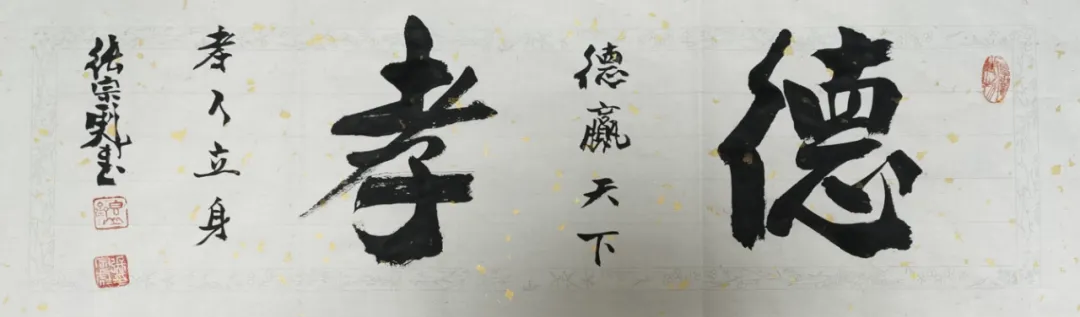 德
德赢天下
孝
孝人立身
张宗彪书